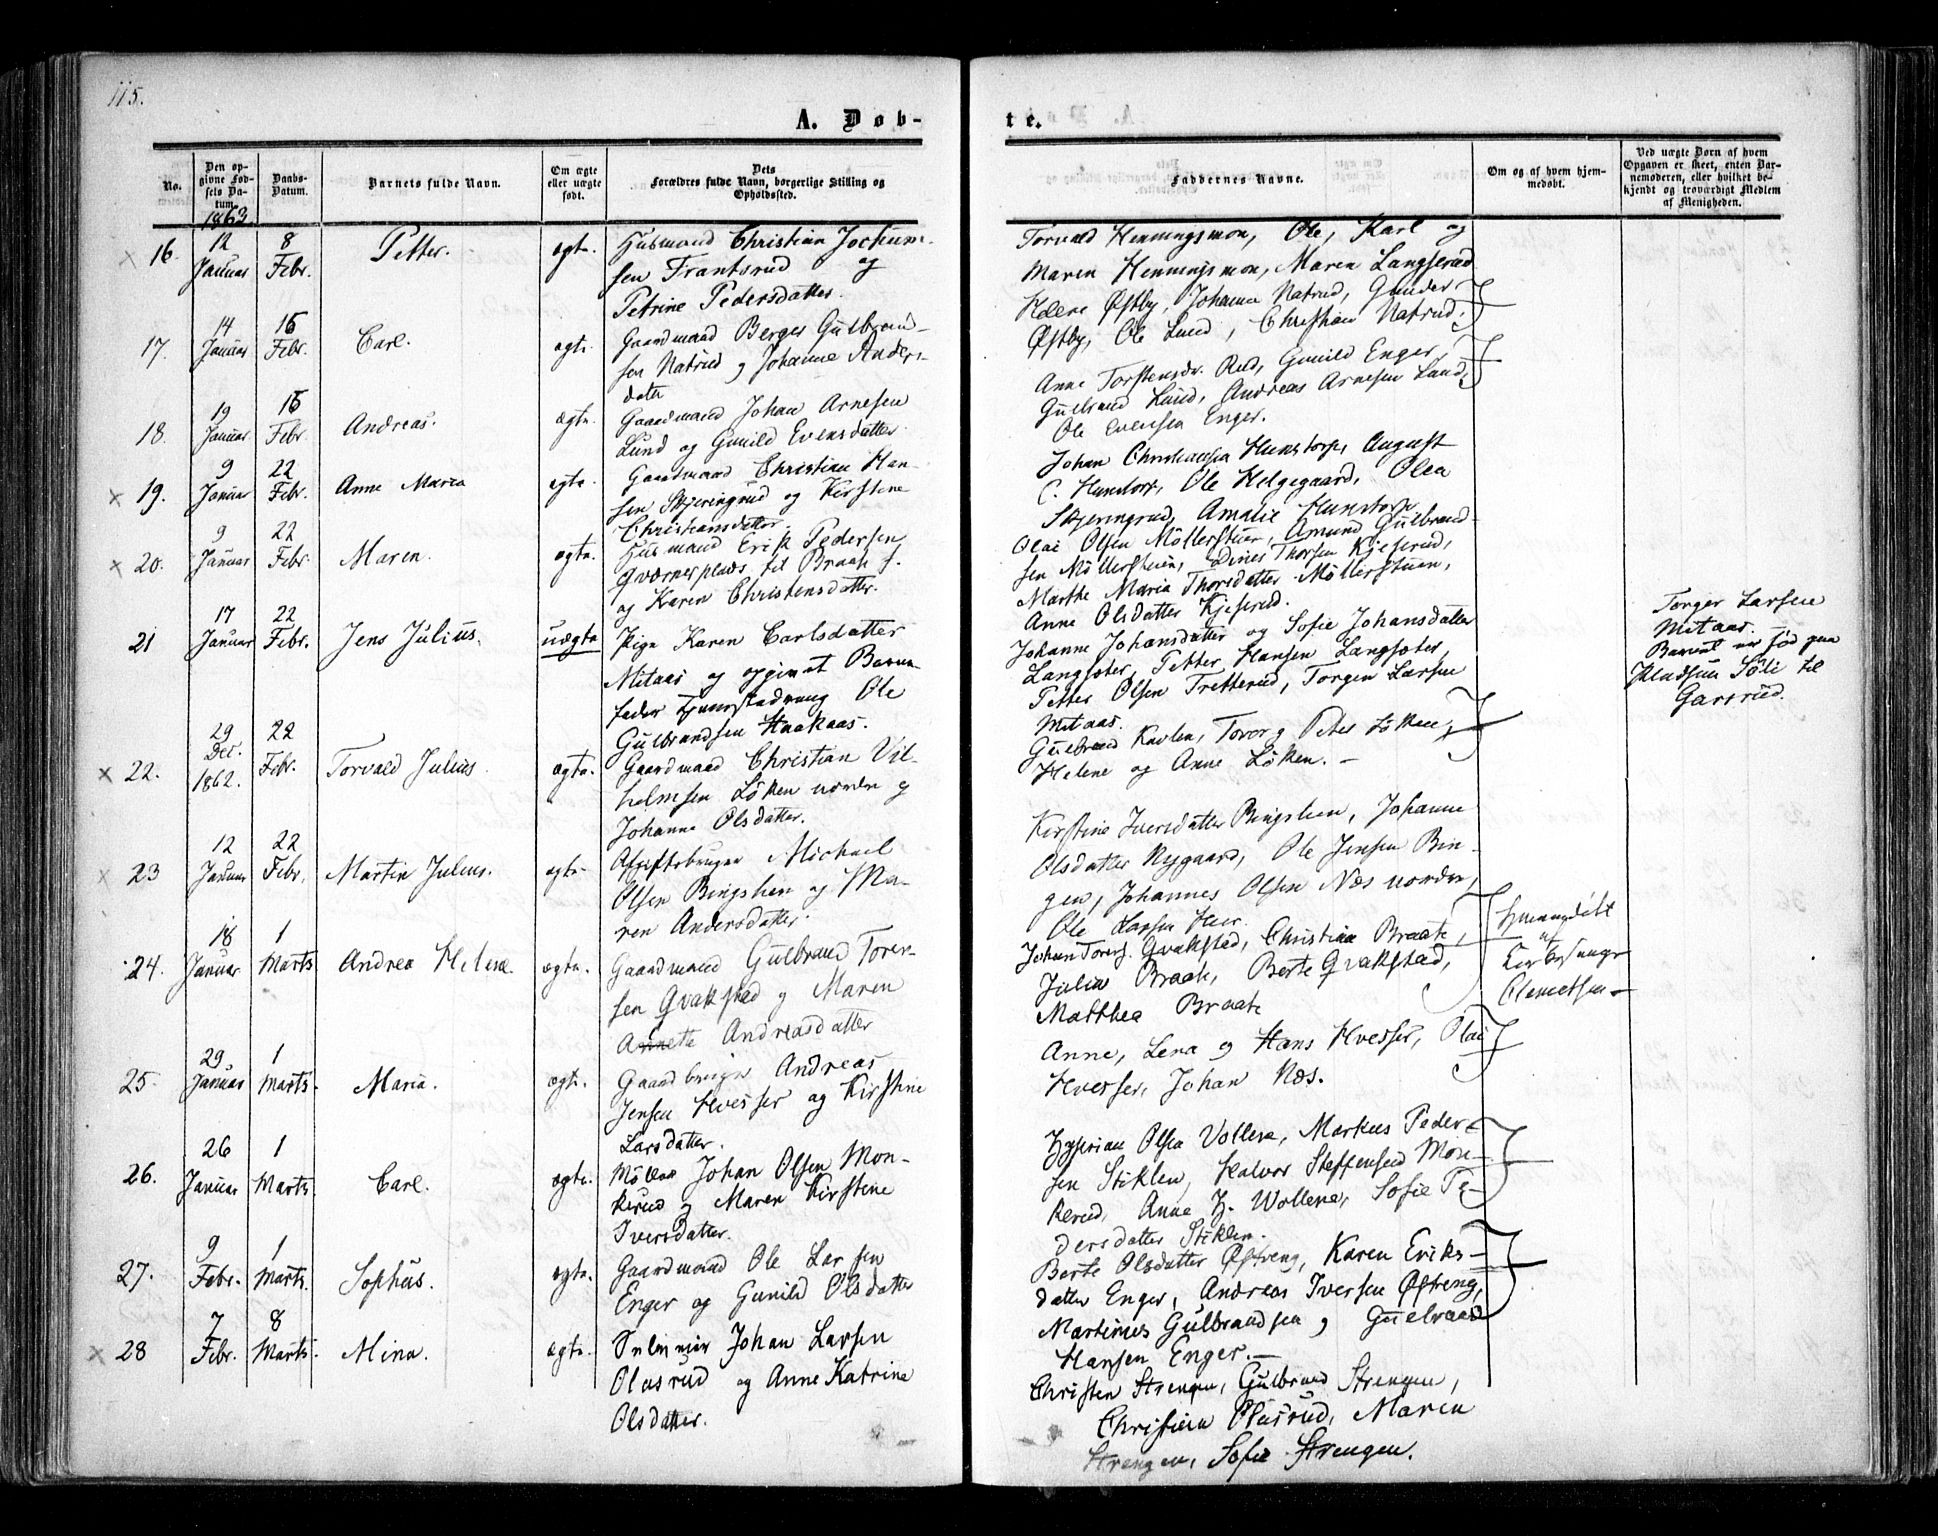 115.
A. Døb-
te.
No.
Den op-
givne Fød-
sels Da-
tum.
Daabs-
Datum.
Barnets fulde Navn.
Om ægte
eller uægte
født.
Dets
Forældres fulde Navn, borgerlige Stilling og
Opholdssted.
Faddernes Navne.
Om og af hvem hjem-
medøbt.
Ved uægte Børn af hvem
Opgaven er skeet, enten Bar-
nemoderen, eller hvilket be-
kjendt og troværdigt Medlem
af Menigheden.
1863
16. 12 Januar 8 Febr. Petter. ægte. Husmand Christian Jochum-
sen Frantsrud og
Petrine Pedersdatter.
Torvald Henningsmon, Ole, Karl og
Maren Henningsmon, Maren Langserud
17. 14 Januar 15 Febr. Carl. ægte. Gaardmand Berger Gulbrand-
sen Natrud og Johanne Anders-
datter
Helene Østby, Johanne Natrud, Gunder
Østby, Ole Lund, Christian Natrud.
18. 19 Januar 15 Febr. Andreas. ægte. Gaardmand Johan Arnesen
Lund og Gunild Evensdatter.
Anne Torstensdr. Rud, Gunild Enger,
Gulbrand Lund, Andreas Arnesen Lund,
Ole Evensen Enger.
19. 9 Januar 22 Febr. Anne Maria ægte. Gaardmand Christian Han-
sen Skjeringrud og Kirstine
Christiansdatter.
Johan Christiansen Hunstorp, August
C. Hunstorp, Ole Helgegaard, Olea
Skjeringrud, Amalie Hunstorp
20. 9 Januar 22 Febr. Maren. ægte. Husmand Erik Pedersen
Qværnerplads til Braate f.
og Karen Christensdatter.
Olai Olsen Möllerstuen, Amund Gulbrand-
sen Möllerstuen, Dines Thorsen Kjeserud,
Marthe Maria Thorsdatter Möllerstuen,
Anne Olsdatter Kjeserud.
21 17 Januar 22 Febr. Jens Julius. uægte Pige Karen Carlsdatter
Mitaas og opgivet Barne-
fader Ole
Gulbrandsen Haakaas.
Johanne Johansdatter og Sofie Johansdatter
Langsæter, Petter Hansen Langsæter,
Petter Olsen Tretterud, Torger Larsen
Mitaas.
Torger Larsen
Mitaas.
Barnet er fød paa
Pladsen til
Garsrud.
22. 29 Dec. 1862. 22 Febr. Torvald Julius. ægte. Gaardmand Christian Vil-
helmsen Löken nordre og
Johanne Olsdatter.
Gulbrand Kavlen, Tover og Peter Löken,
Helene og Anne Löken. -
23 12 Januar 22 Febr. Martin Julius. ægte. Afgiftsbruger Michael
Olsen Bingshen og Ma-
ren Andersdatter.
Kirstine Iversdatter Bingshen, Johanne
Olsdatter Nygaard, Ole Jensen Bin-
gen, Johannes Olsen Næs nordre,
Ole Larsen Huer.
24. 18 Januar 1 Marts Andrea Helene. ægte. Gaardmand Gulbrand Torer-
sen Qvakstad og Maren
Annette Andreasdatter
Johan Torers. Qvakstad, Christine Braate,
Julia Braate, Berte Qvakstad,
Matthea Braate
hjemmedøbt
af
Kirkesanger
Clemetsen
25. 29 Januar 1 Marts. Maria. ægte. Gaardbruger Andreas
Jensen Hvesser og Kirstine
Larsdatter.
Anne, Lena og Hans Hvesser, Olai
Hvesser, Johan Næs.
26. 26 Januar 1 Marts. Carl. ægte. Möller Johan Olsen Mon-
kerud og Maren Kirstine
Iversdatter.
Zyprian Olsen Vollene, Markus Peder-
sen Stiklen, Halvor Steffensen Mon-
kerud, Anne Z. Wollene, Sofie Pe-
dersdatter Stiklen.
27. 9 Febr. 1 Marts. Sophus. ægte. Gaardmand Ole Larsen
Enger og Gunild Olsdatter
Berte Olsdatter Østreng, Karen Eriks-
datter Enger, Andreas Iversen Østreng,
Martinus Gulbrandsen og Gulbrand
Hansen Enger. -
28 7 Febr. 8 Marts. Mina. ægte. Selveier Johan Larsen
Olasrud og Anne Katrine
Olsdatter.
Christen Strengen, Gulbrand Strengen,
Christian Olasrud, Maren
Strengen, Sofie Strengen.